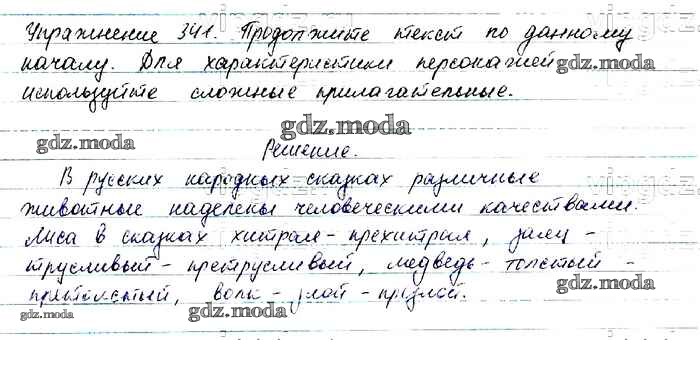 Упражнение 341. Продолжите текст по данному
началу. Для характеристики персонажей
gdz.moda
используйте сложные прилагательные.
gdz.moda
gdz.moda
Решение.
В русских народных сказках различные
животные наделены человеческими качествами.
Лиса в сказках хитрая-прехитрая, заяц -
трусливый-претрусливый, медведь-толстый -
претолстый, волк-злой-презлой.
gdz.moda
gdz.moda
gdz.moda